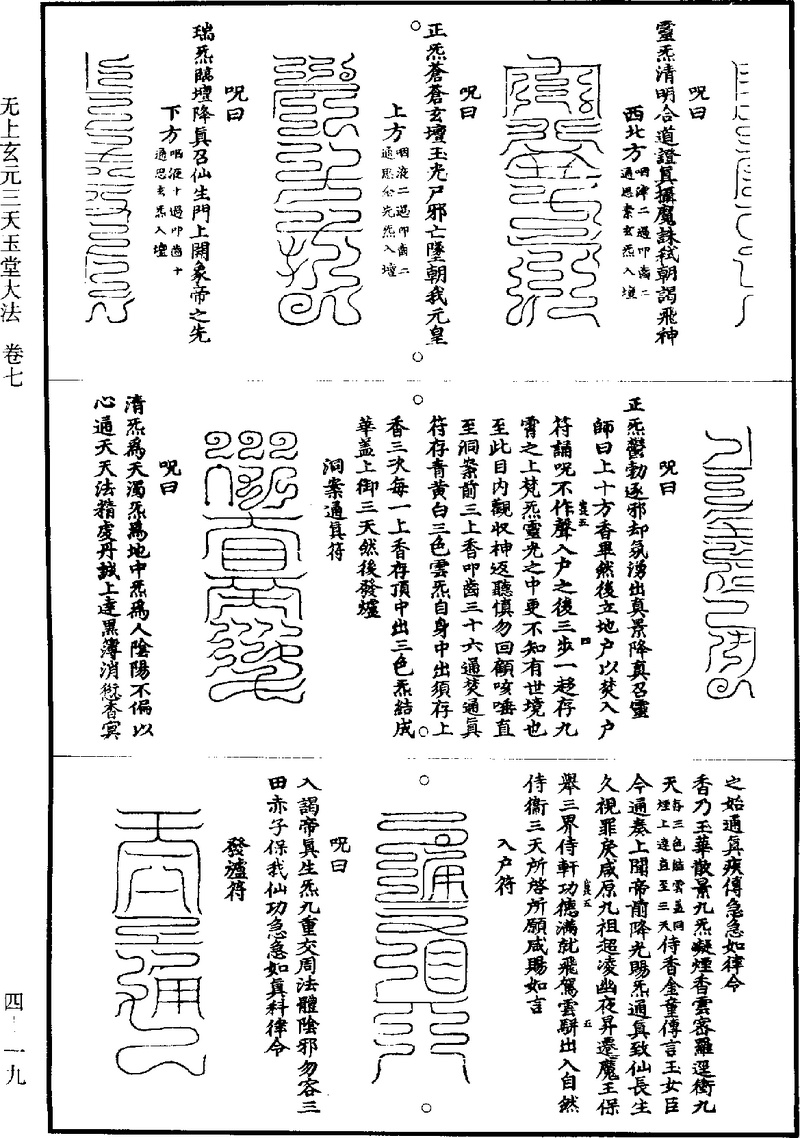 咒曰
靈炁清明合道證真攝魔誅弒朝謁飛神
西北方咽津二過叩齒二
通思素玄炁入壇
咒曰
正炁蒼蒼玄壇玉光尸邪亡墜朝我元皇
上方咽液二過叩齒二
通思公光炁入壇
咒曰
瑞炁臨壇降真召仙生門上開象帝之先
下方咽液十過叩齒十
通思玄炁入壇
咒曰
正炁鬱勃逐邪却氛湧出真景降真召靈
師曰上十方香畢然後立地户以焚入户
符誦咒不作聲入户之後三步一趍存九
霄之上梵炁靈光之中更不知有世境也
至此目內觀收神返聽慎勿回顧咳唾直
至洞案前三上香叩齒三十六通焚通真
符存青黃白三色雲炁自身中出須存上
香三次每一上香存頂中出三色炁結成
華盖上御三天然後發爐
洞案通真符
咒曰
清炁爲天濁炁爲地中炁爲人陰陽不偏以
心通天天法稽虔丹誠上達黑簿消愆香冥
之始通真疾傳急急如律令
香乃玉華散景九炁凝煙香雲密羅逕衝九
天存三色雲盖同
煙上達直至三天侍香金童傳言玉女臣
今通奏上聞帝前降光賜炁通真致仙長生
久視罪戾咸原九祖超凌幽夜昇遷魔王保
舉三界侍軒功德滿就飛駕雲騈出入自然
侍衛三天所啓所願咸賜如言
入户符
咒曰
入謁帝真生炁九重交周法體陰邪勿容三
田赤子保我仙功急急如真科律令
發爐符
无上玄元三天玉堂大法 卷七
四·一九